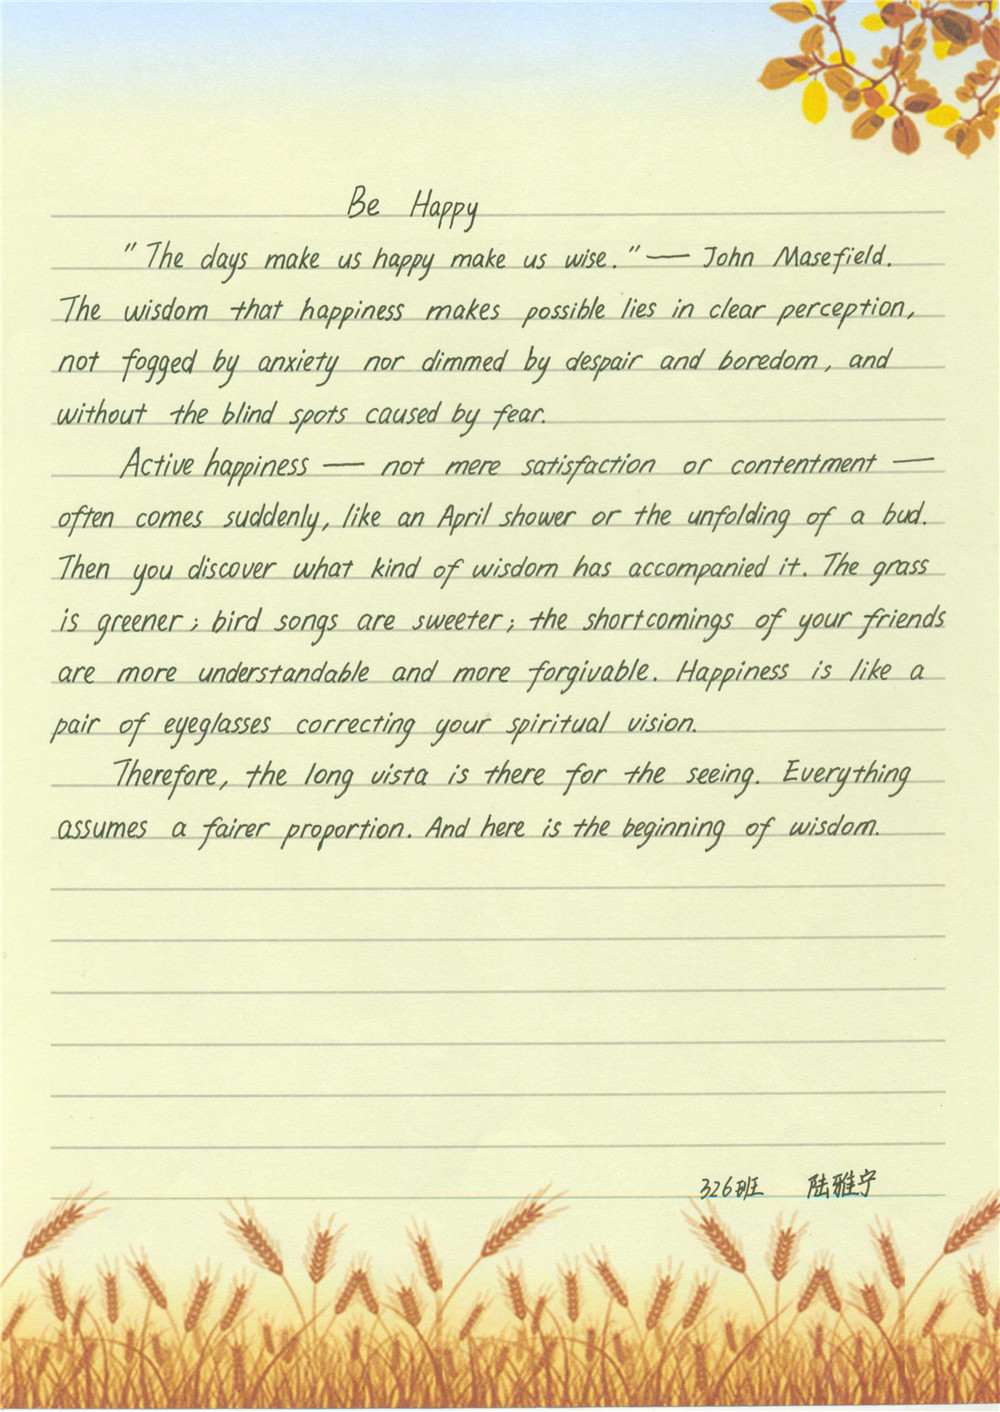 Be Happy
"The days make us happy make us wise." — John Masefield.
The wisdom that happiness makes possible lies in clear perception,
not fogged by anxiety nor dimmed by despair and boredom, and
without the blind spots caused by fear.
Active happiness — not mere satisfaction or contentment —
often comes suddenly, like an April shower or the unfolding of a bud.
Then you discover what kind of wisdom has accompanied it. The grass
is greener; bird songs are sweeter; the shortcomings of your friends
are more understandable and more forgivable. Happiness is like a
pair of eyeglasses correcting your spiritual vision.
Therefore, the long vista is there for the seeing. Everything
assumes a fairer proportion. And here is the beginning of wisdom.
326班 陆雅宁